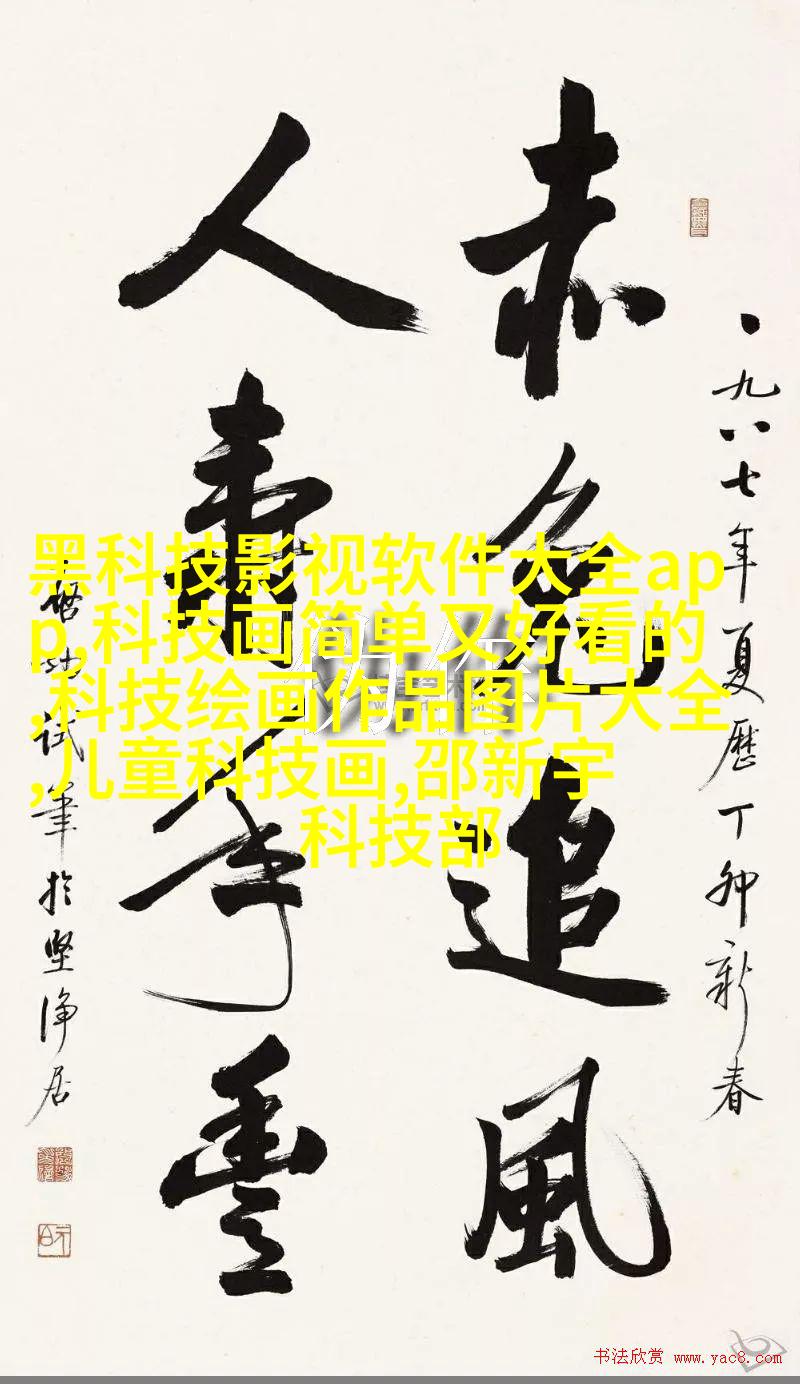 一九八七年夏歷丁卯新春
赤兔追風
人壽年豐
啓功試筆於堅淨居
黑科技影视软件大全ap
p,科技画简单又好看的
,科技绘画作品图片大全
,儿童科技画,邵新宇
科技部
书法欣赏 www.yac8.com